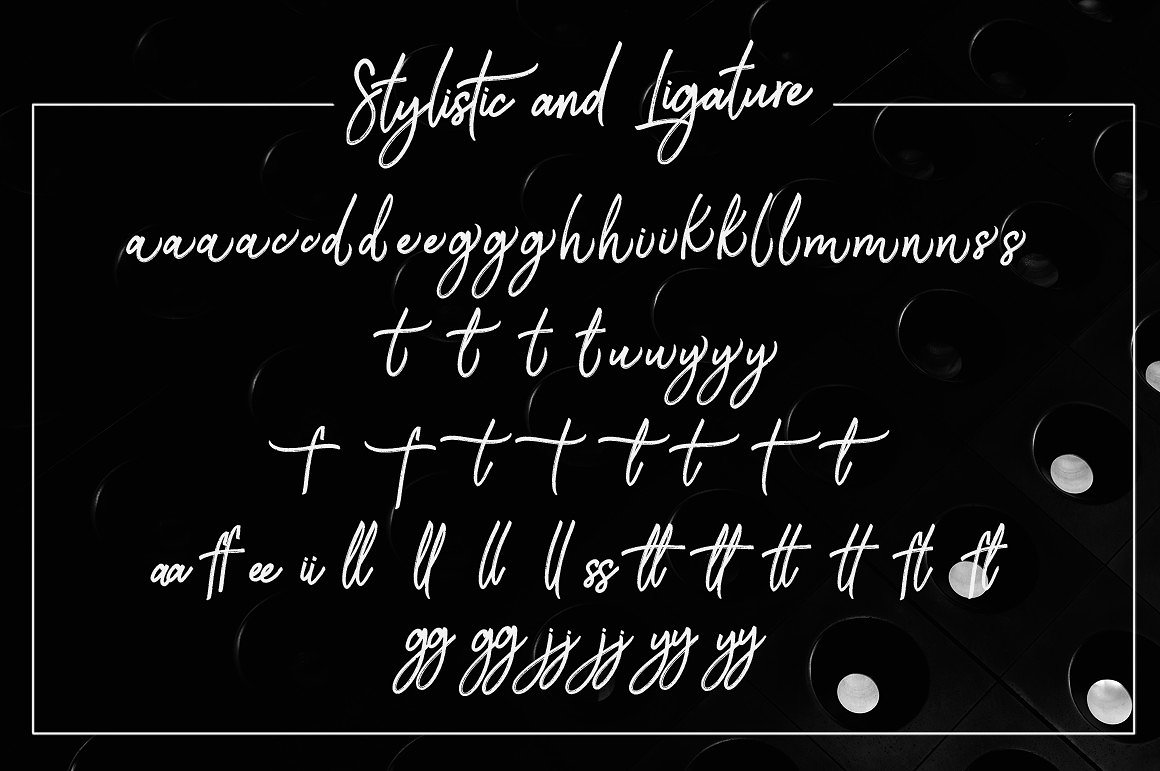 Stylistic and Ligature
aaaaaccddeegggghhiikkllmmnnss
t t t tuwyyy
f f t t t t t t
aa ff ee ii ll ll ll ll ss tt tt tt tt ft ft
gg gg jj jj yy yy